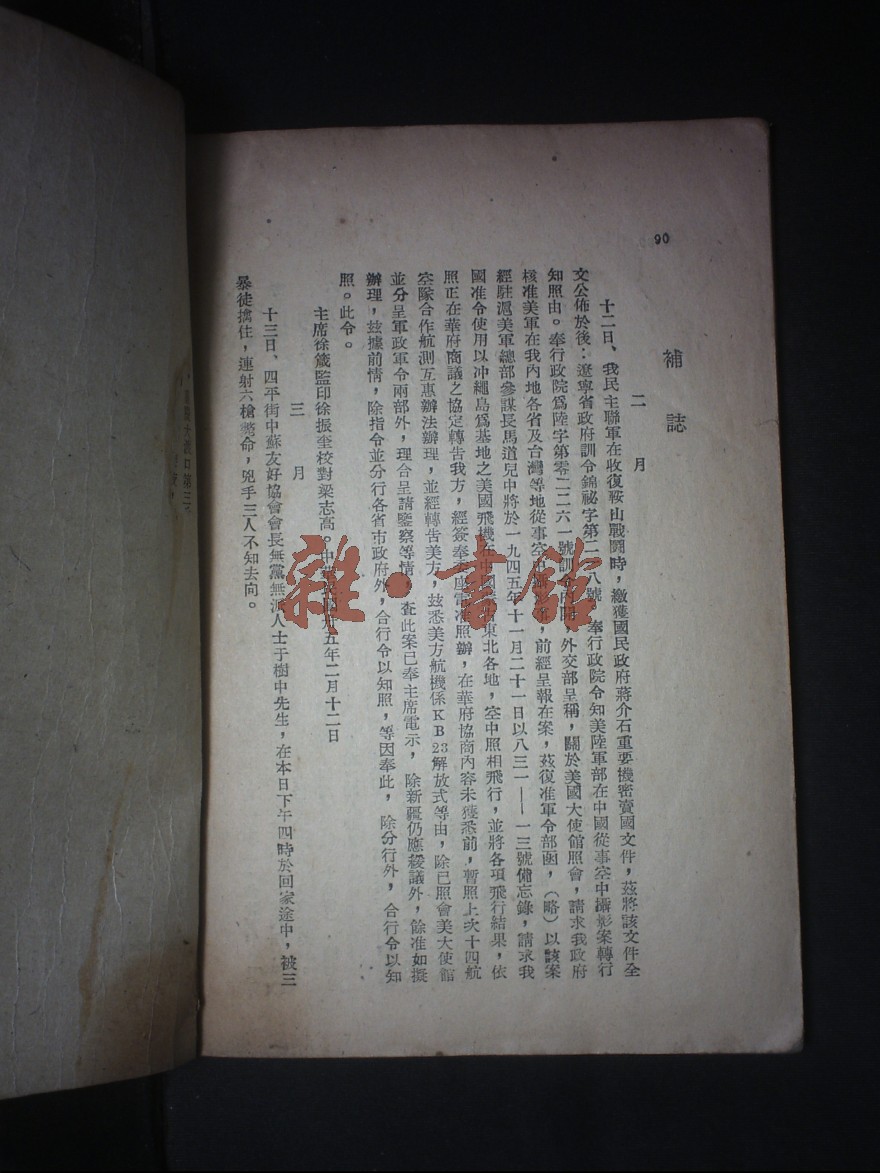 90
補誌
二月
十二日、我民主聯軍在收復鞍山戰鬪時，繳獲國民政府蔣介石重要機密賣國文件，茲將該文件全
文公佈於後：遼寧省政府訓令錦祕字第二二八號 奉行政院令知美陸軍部在中國從事空中攝影案轉行
知照由。奉行政院爲陸字第零二二六一號訓令內開，外交部呈稱，關於美國大使館照會，請求我政府
核准美軍在我內地各省及台灣等地從事空中攝影，前經呈報在案，茲復准軍令部函，（略）以該案
經駐滬美軍總部參謀長馬道兒中將於一九四五年十一月二十一日以八三一——一三號備忘錄，請求我
國准令使用以冲繩島爲基地之美國飛機在中國東北各地，空中照相飛行，並將各項飛行結果，依
照正在華府商議之協定轉告我方，經簽奉委座電准照辦，在華府協商內容未獲悉前，暫照上次十四航
空隊合作航測互惠辦法辦理，並經轉告美方，茲悉美方航機係KB23解放式等由，除已照會美大使館
並分呈軍政軍令兩部外，理合呈請鑒察等情，查此案已奉主席電示，除新疆仍應緩議外，餘准如擬
辦理，茲據前情，除指令並分行各省市政府外，合行令以知照，等因奉此，除分行外，合行令以知
照。此令。
主席徐箴監印徐振奎校對梁志高。中華民國卅五年二月十二日
三月
十三日、四平街中蘇友好協會會長無黨無派人士于樹中先生，在本日下午四時於回家途中，被三
暴徒擒住，連射六槍斃命，兇手三人不知去向。
雜·書館